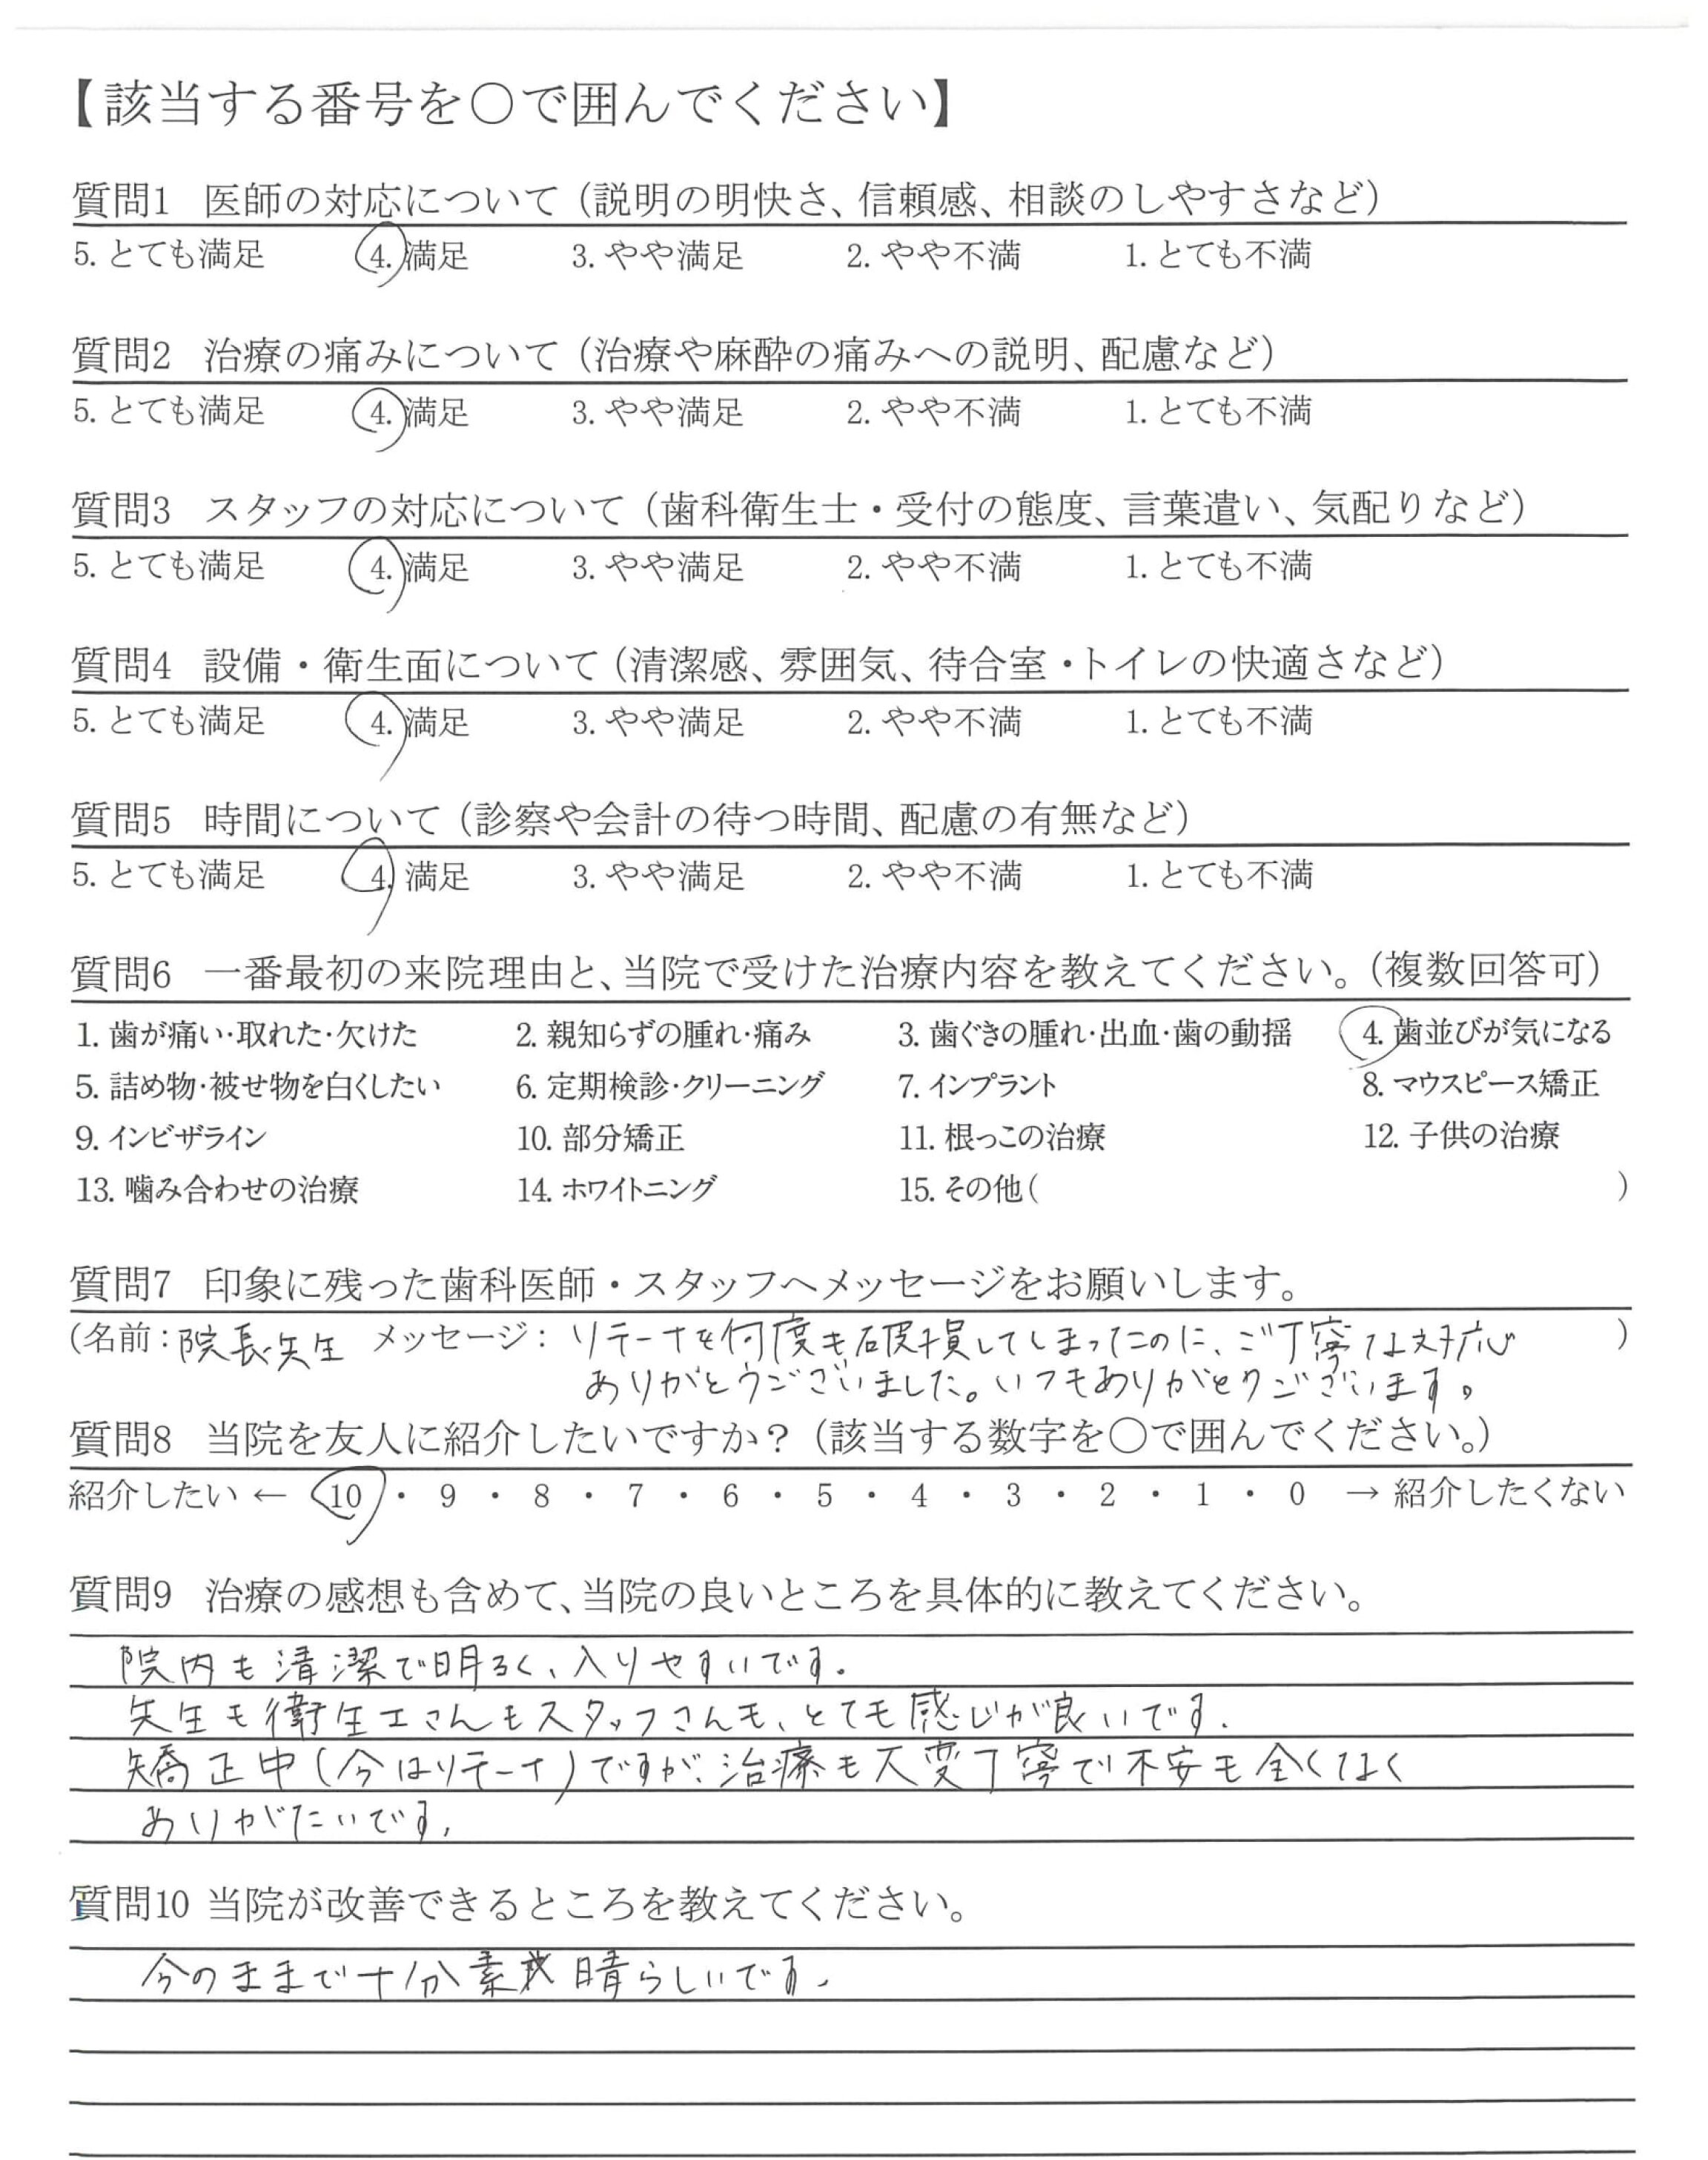 【該当する番号を〇で囲んでください】
質問1 医師の対応について（説明の明快さ、信頼感、相談のしやすさなど）
5. とても満足 4. 満足 3. やや満足 2. やや不満 1. とても不満
質問2 治療の痛みについて（治療や麻酔の痛みへの説明、配慮など）
5. とても満足 4. 満足 3. やや満足 2. やや不満 1. とても不満
質問3 スタッフの対応について（歯科衛生士・受付の態度、言葉遣い、気配りなど）
5. とても満足 4. 満足 3. やや満足 2. やや不満 1. とても不満
質問4 設備・衛生面について（清潔感、雰囲気、待合室・トイレの快適さなど）
5. とても満足 4. 満足 3. やや満足 2. やや不満 1. とても不満
質問5 時間について（診察や会計の待つ時間、配慮の有無など）
5. とても満足 4. 満足 3. やや満足 2. やや不満 1. とても不満
質問6 一番最初の来院理由と、当院で受けた治療内容を教えてください。（複数回答可）
1. 歯が痛い・取れた・欠けた 2. 親知らずの腫れ・痛み 3. 歯ぐきの腫れ・出血・歯の動揺 4. 歯並びが気になる
5. 詰め物・被せ物を白くしたい 6. 定期検診・クリーニング 7. インプラント 8. マウスピース矯正
9. インビザライン 10. 部分矯正 11. 根っこの治療 12. 子供の治療
13. 噛み合わせの治療 14. ホワイトニング 15. その他（ ）
質問7 印象に残った歯科医師・スタッフへメッセージをお願いします。
（名前：院長先生 メッセージ： リテーナを何度も破損してしまってたのに、ご丁寧な対応 ）
ありがとうございました。いつもありがとうございます。
質問8 当院を友人に紹介したいですか？（該当する数字を〇で囲んでください。）
紹介したい ← 10 ・ 9 ・ 8 ・ 7 ・ 6 ・ 5 ・ 4 ・ 3 ・ 2 ・ 1 ・ 0 → 紹介したくない
質問9 治療の感想も含めて、当院の良いところを具体的に教えてください。
院内も清潔で明るく、入りやすいです。
先生も衛生士さんもスタッフさんも、とても感じが良いです。
矯正中（今はリテーナ）ですが、治療も大変丁寧で不安も全くなく
ありがたいです。
質問10 当院が改善できるところを教えてください。
今のままで十分素晴らしいです。